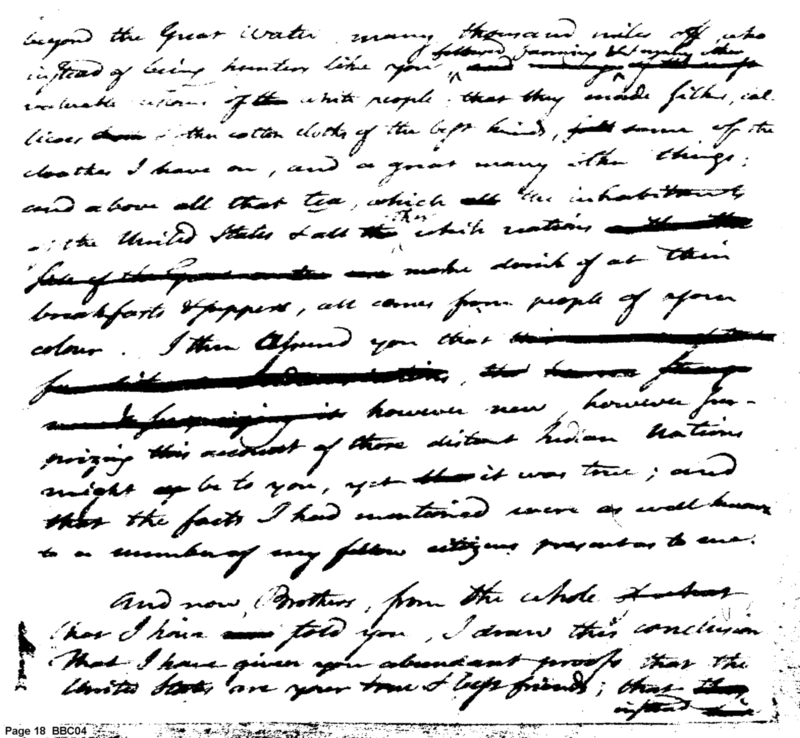 beyond the Great Water many thousand miles off, who
followed farming &
instead of being hunters like you
valuable of white people; that they made silks, cal-
licoes & other cotton cloths of the best kinds, some of the
cloathes I have on, and a great many other things;
and above all that tea, which the inhabitants
other
of the United States & all the white nations
make drink of at their
breakfasts & suppers, all comes from people of your
colour. I then assured you that
however new, however sur-
prizing this account of those distant Indian Nations
might be to you, yet it was true; and
that the facts I had mentioned were as well known
to a number of my fellow citizens present as to me.
And now, Brothers, from the whole
that I have told you, I draw this conclusion
that I have given you abundant proofs that the
United States are your true & best friends; that
instead
Page 18 BBC04